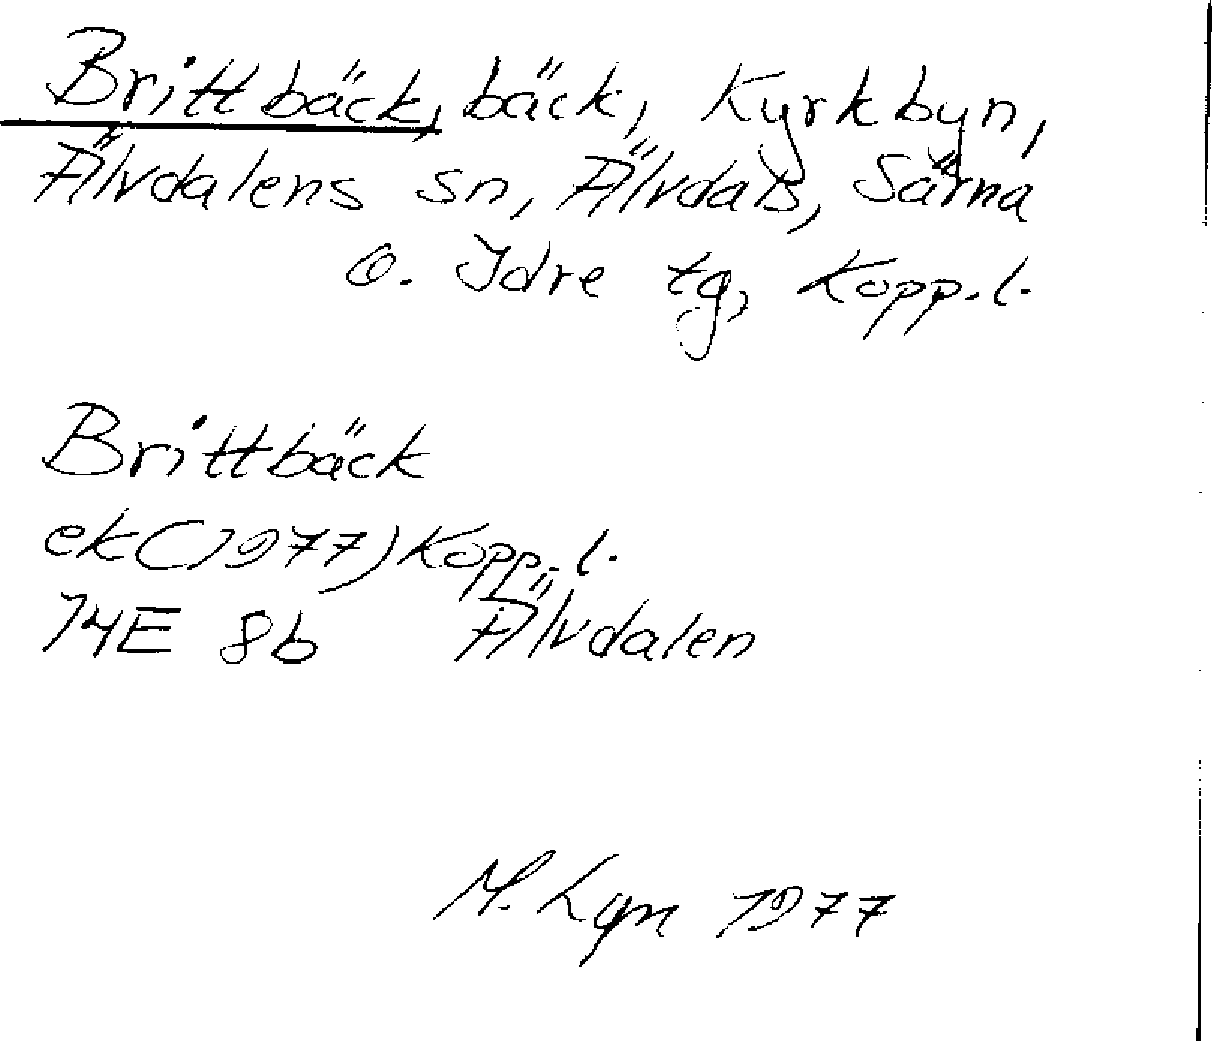 Brittbäck, bäck, Kyrkbyn,
Älvdalens sn, Älvdals, Särna
o. Idre tg, Kopp.l.
Brittbäck
ek(1977)Kopp.l.
14E 8b Älvdalen
M. Lgn 1977